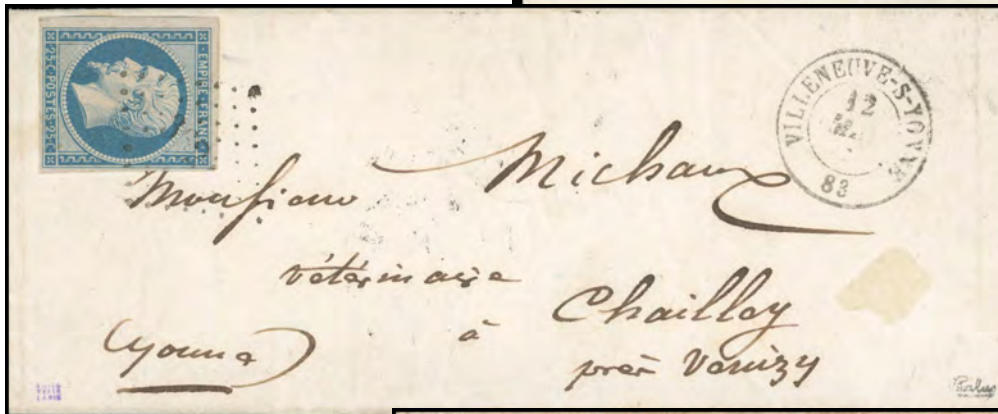 EMPIRE·FRANC·
25·C·POSTES·25·C
VILLENEUVE-S-YONNE
12
83
Monsieur Michaux
vétérinaire
à Chailley
près Venizy
(Yonne)